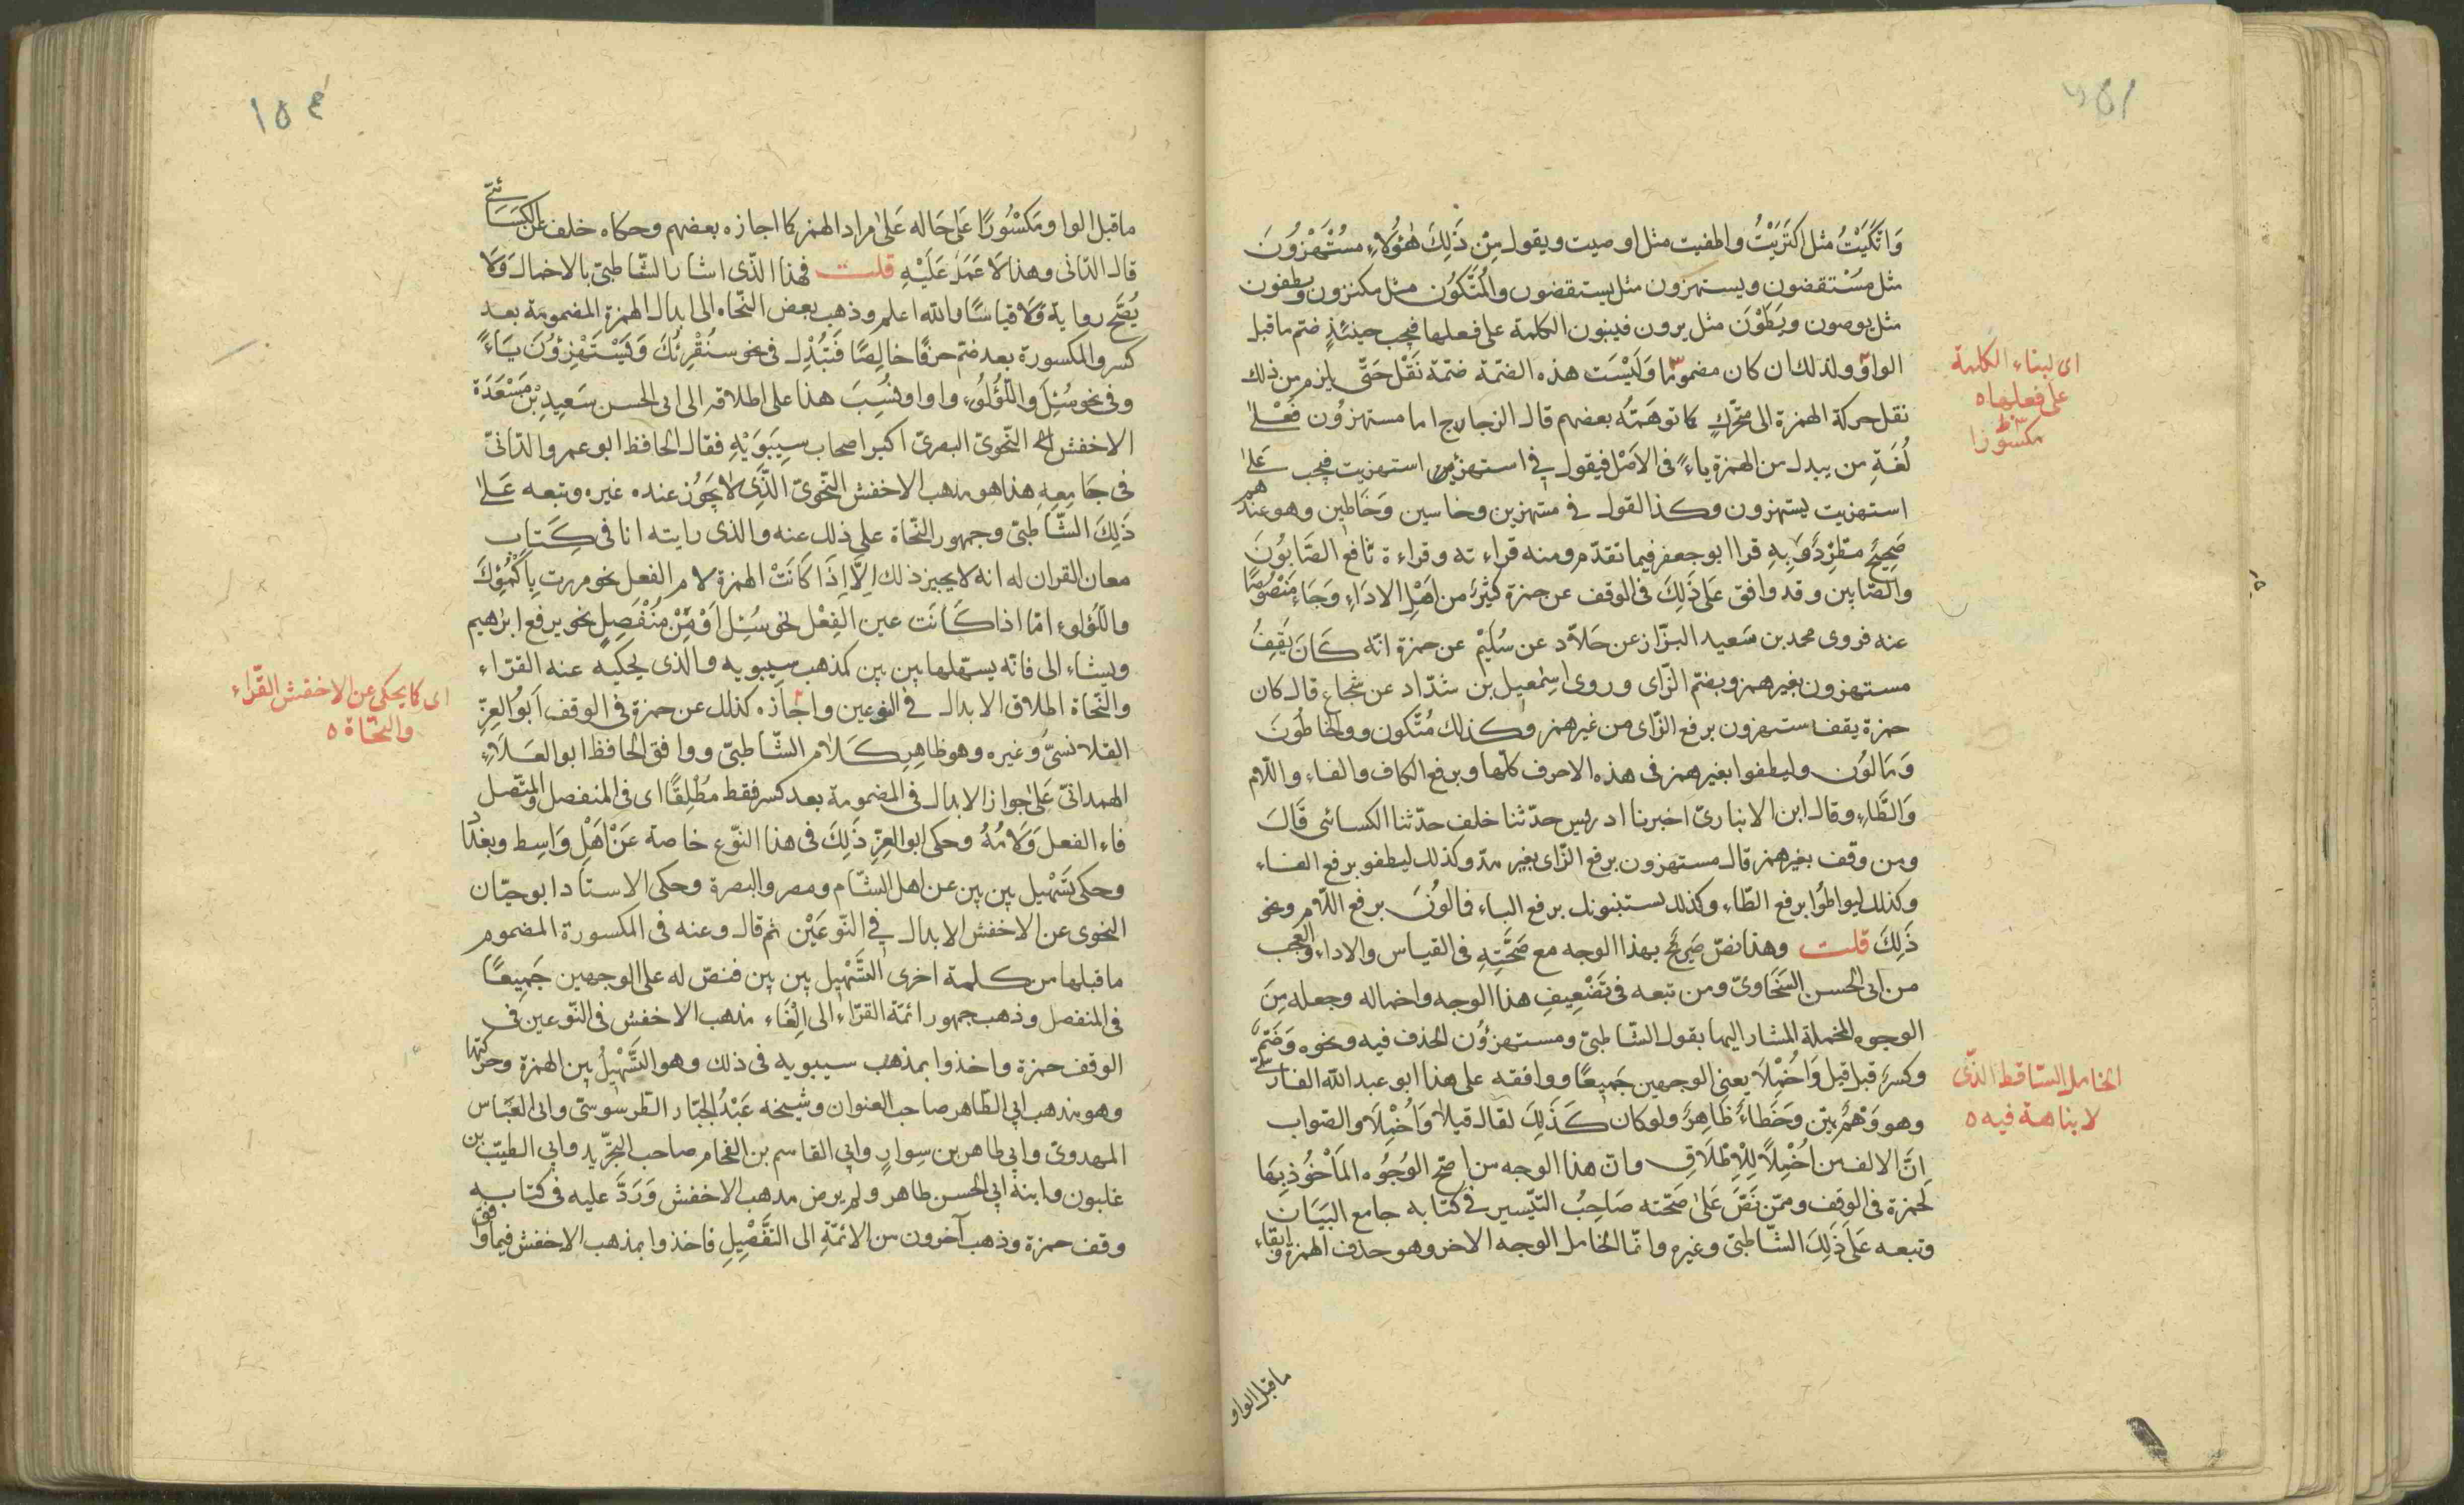 وَاتَّكَيْتُ مثل اكتَرَيْتُ واطفيت مثل اوصيت ويقول مِنْ ذَلِكَ هٰؤُلَاءِ مسْتُهْزُونَ
مثل مُسْتقضون ويستهزون مثل يستقضون والمُتَّكُوُن مثل مكترون ويطفون
مثل يوصون ويَطَوْنَ مثل يرون فيبنون الكلمة على فعلها فيجب حينئذٍ ضم ما قبل
الواو ولذلك ان كان مضموما وَلَيْسَت هذه الضمّة ضمّة نَقْل حَتّى يلزم من ذلك
نقل حركة الهمزة الى متحَرّكٍ كما توهَمَتُه بعضهم قال الزجاج اما مستهزُون فَعْلٰى
لُغَةِ من يبدل من الهمزة ياءً فى الاصْل فيقول فى استهزئ استهزيت فيجب عَلىٰ
استهزيت يستهزون وكذا القول فى مستهزين وخاسين وَخَاطين وهو عندهم
صَحِيحٌ مطّرِدٌ وَبِهِ قرا ابو جعفر فيما تقدّم ومنه قراءته وقراءة نافع الصَّابُونَ
والصّابين وقد وافق عَلىٰ ذَلِكَ فى الوقف عن حمزة كَثِيرٌ من اهْلِ الادَاءِ وَجَاءَ مَنْصُوصًا
عنه فروى محمد بن سَعيد البزّاز عن خلّاد عن سُلَيْم عن حمزة انّه كَانَ يَقِفُ
مستهزون بغير همز وبضم الزّاى وروى اسْمٰعيل بن شدّاد عن شجاع قال كان
حمزة يقف مستهزون برفع الزّاى من غير همز وكذلك مُتَّكون والخَاطُونَ
وَمَالوُن وليطفوا بغير همز فى هذه الاحرف كلّها وبرفع الكاف والفاء واللّام
وَالطَّاءِ وقال ابن الانبارىّ اخبرنا ادريس حدّثنا خلف حدّثنا الكسائى قَالَ
ومن وقف بغير همز قال مستهزون برفع الزّاى بغير مدّ وكذلك ليطفو برفع الفاء
وكذلك ليواطُوا برفع الطّاء وكذلك يستنبونك برفع الباء فمالُونَ برفع اللّام ونحو
ذَلِكَ قلت وهذا نصّ صَرِيحٌ بهذا الوجه مع صَحّتِهِ فى القياس والاداء والعجب
من ابى الحسن السَّخَاوىّ ومن تبعه فى تَضْعِيفِ هذا الوجه واخماله وجعله مِنَ
الوجوه المخملة المشار اليها بقول الشّاطبىّ ومستهزؤُن الحذف فيه ونحوه وَضَمٌّ
وكسرٌ قبل قيل وَاُخْمِلَا يعنى الوجهين جَميعًا ووافقه على هذا ابو عبد الله الفَارسىّ
وهو وَهْمٌ بيّن وَخَطاءٌ ظَاهِرٌ ولو كان كَذَلِكَ لقال قيلا وَاُخْمِلَا والصّواب
اِنَّ الالف من اُخْمِلَا لِلْاِطْلَاقِ وانّ هذا الوجه من اصحّ الوُجُوه المأْخُوذِ بِهَا
لحمزة فى الوقف وممّن نَصَّ عَلىٰ صَحّته صَاحِبُ التيّسير فى كتابه جامع البَيَان
وتبعه عَلىٰ ذَلِكَ الشّاطبىّ وغيره وامّا الخامل الوجه الاخر وهو حذف الهمزة وابقاء
ما قبل الواو
اى لبناء الكلمة
على فعلها ه
مكسُورًا
الخامل السّاقط الذّى
لا بناهة فيه ه
١٥٤
ما قبل الواو مَكسُورًا عَلىٰ حَاله عَلىٰ مراد الهمز كما اجازه بعضهم وحكاه خلف عن الكِسَائىّ
قال الدّانى وهذا لا عَمَلَ عَلَيْهِ قلت فهذا الذّى اشار الشّاطبىّ بالاخمال وَلا
يُصَحّ روايةً وَلا قياسًا والله اعلم وذهب بعض النّحاه الى ابدال الهمزة المضمومة بعد
كسر والمكسورة بعد ضم حرفًا خالِصًا فَتُبْدِل فى نحو سنُقْرِئُكَ وَيَسْتَهْزِءُونَ يَاءً
وفى نحو سُئِلَ واللّؤْلُوءِ واوا ونُسِبَ هذا على اطلاقه الى ابى الحسن سَعِيدِ بْنِ مَسْعَدَة
الاخفش النّحوىّ البصرىّ اكبر اصحاب سِيبَوَيْهِ فقال الحافظ ابو عمرو الدّانىّ
فى جَامِعِهِ هذا هو مذهب الاخفش النّحوىّ الذّىِ لا يَجُوز عنده غيره وتبعه عَلىٰ
ذَلِكَ الشّاطبىّ وجمهور النّحاة على ذلك عنه والذى رايته انا فى كِتَاب
معان القران له انه لا يجيز ذلك اِلّا اِذَا كَانَتْ الهمزة لام الفعل نحو مررت بِاَكْمُؤِكَ
واللّؤلوءِ امّا اذا كَانَت عين الفِعْل نحو سُئِل اَوْ مِنْ مُنْفَصِلٍ نحو يرفع ابرٰهيم
ويشاء الى فانّه يسّهلها بين بين كمذهب سيبويه والذى يحكيه عنه القرّاء
والنّحاة اطلاق الابدال فى النوعين واجازه كذلك عن حمزة فى الوقف اَبُو العِزّ
القلانسىّ وغيره وهو ظاهر كَلَام الشّاطبىّ ووافق الحافظ ابو العَلَاءِ
الهمدانىّ عَلىٰ جواز الابدال فى المضمومة بعد كسر فقط مُطْلَقًا اى فى المنفصل والمتّصل
فاء الفعل وَلامُهُ وحكى ابو العِزّ ذَلِكَ فى هذا النّوع خاصة عَنْ اَهْلِ وَاسِط وبغداد
وحكى تَسْهيل بين بين عن اهل الشّام ومصر والبصرة وحكى الاستاد ابو حيّان
النحوى عن الاخفش الابدال فى النّوعَيْن ثم قال وعنه فى المكسورة المضموم
ما قبلها من كلمة اخرى التَّسْهِيل بين بين فنصّ له على الوجهين جَمِيعًا
فى المنفصل وذهب جمهور ائمّة القرّاء الى اِلْغَاءِ مذهب الاخفش فى النّوعين فى
الوقف حمزة واخذوا بمذهب سيبويه فى ذلك وهو التَّسْهِيلُ بين الهمزة وحركتها
وهو مذهب ابى الطّاهر صاحب العنوان وشيخه عَبْدُ الجبّار الطّرسوسىّ وابى العَبّاس
المهدوىّ وابى طاهر بن سِوارٍ وابى القاسم بن الفحام صاحب التجّريد وابى الطيّب بن
غلبون وابنه ابى الحسن طاهر ولم يرض مذهب الاخفش وَرَدَّ عليه فى كتابه
وقف حمزة وذهب آخرون من الائمّةِ الى التفّصْيِلِ فاخذوا بمذهب الاخفش فيما وافق
اى كما يحكى عن الاخفش القّراء
والنّحاة ه